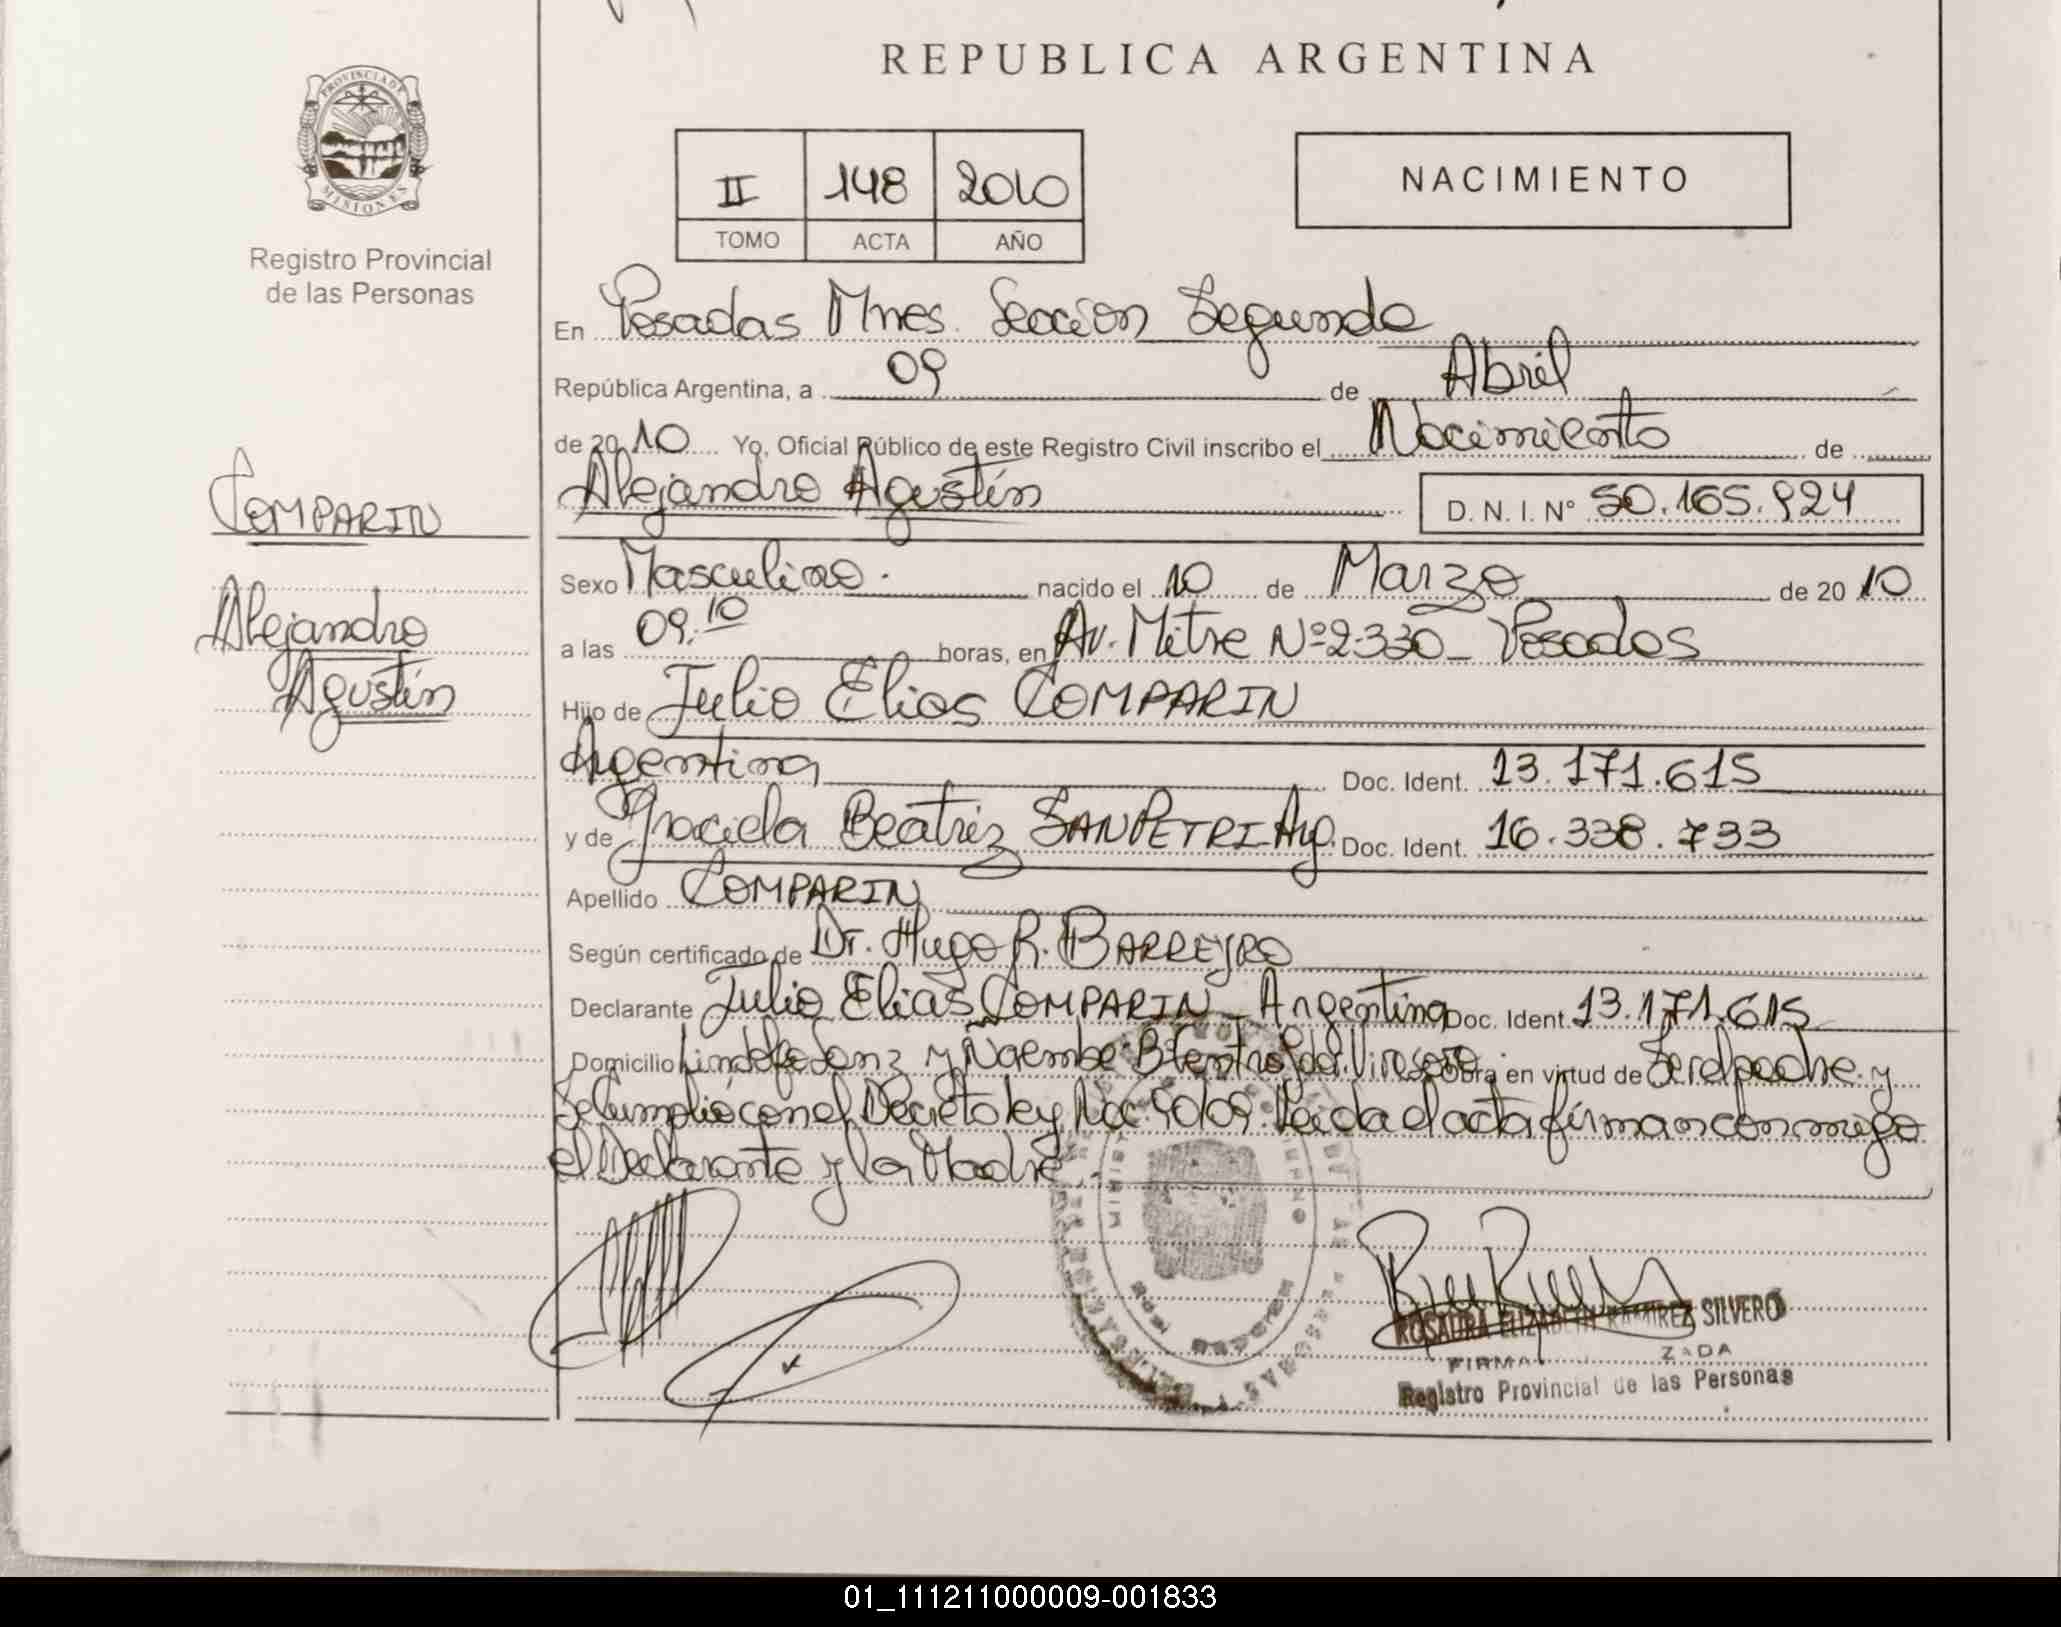 REPUBLICA ARGENTINA
PROVINCIA DE
MISIONES
Registro Provincial
de las Personas
II 148 2010
TOMO ACTA AÑO
NACIMIENTO
En Posadas Mnes. Sección Segunda
República Argentina, a 09 de Abril
de 2010 Yo, Oficial Público de este Registro Civil inscribo el Nacimiento de
Alejandro Agustín D. N. I. Nº 50.165.924
COMPARIN
Alejandro
Agustín
Sexo Masculino. nacido el 10 de Marzo de 2010
a las 09.10 horas, en Av. Mitre Nº 2.330 - Posadas
Hijo de Julio Elias COMPARIN
Argentina Doc. Ident. 13.171.615
y de Graciela Beatriz SANPETRI Arg. Doc. Ident. 16.338.733
Apellido COMPARIN
Según certificado de Dr. Hugo R. BARREYRO
Declarante Julio Elias COMPARIN - Argentina Doc. Ident. 13.171.615
Domicilio y Obra en virtud de Ser el padre y
Se Cumplió con el Decreto Ley Leida el acta firman conmigo
el Declarante y la Madre
ROSAURA ELIZABETH RAMIREZ SILVERO
Registro Provincial de las Personas
01_111211000009-001833